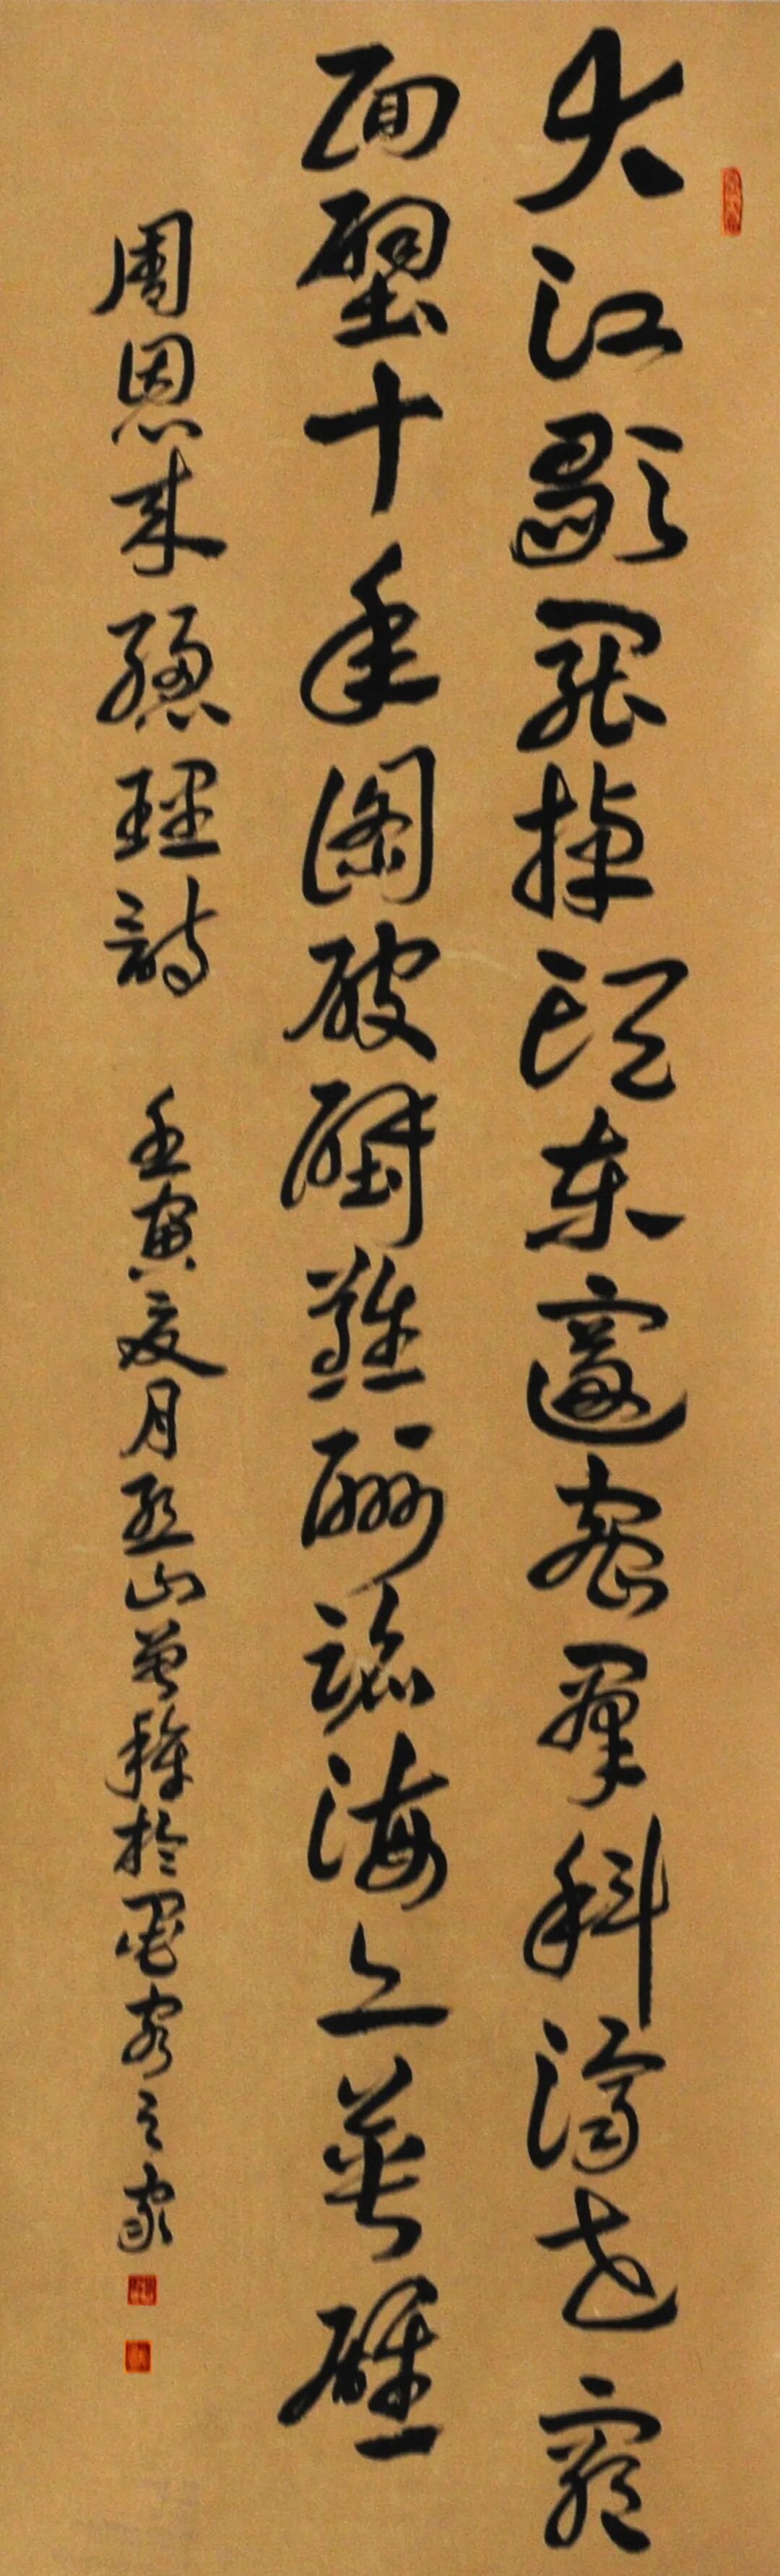 大江歌罷掉頭東邃密群科濟世窮
面壁十年圖破壁難酬蹈海亦英雄
周恩來總理詩 壬寅夏月山於墨客之家